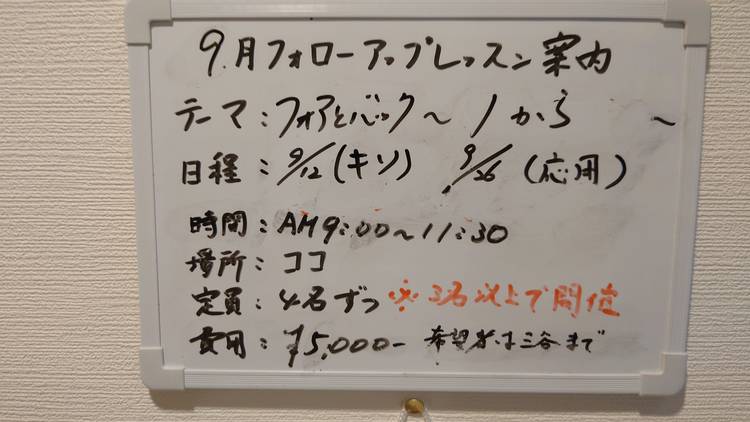 9.月フォローアップレッスン案内
テーマ:フォアとバック〜1から 〜
日程:9/12(キソ) 9/26(応用)
時間:AM9:00〜11:30
場所:ココ
定員:4名ずつ ※3名以上で開位
費用:¥5,000- 希望者は三谷まで